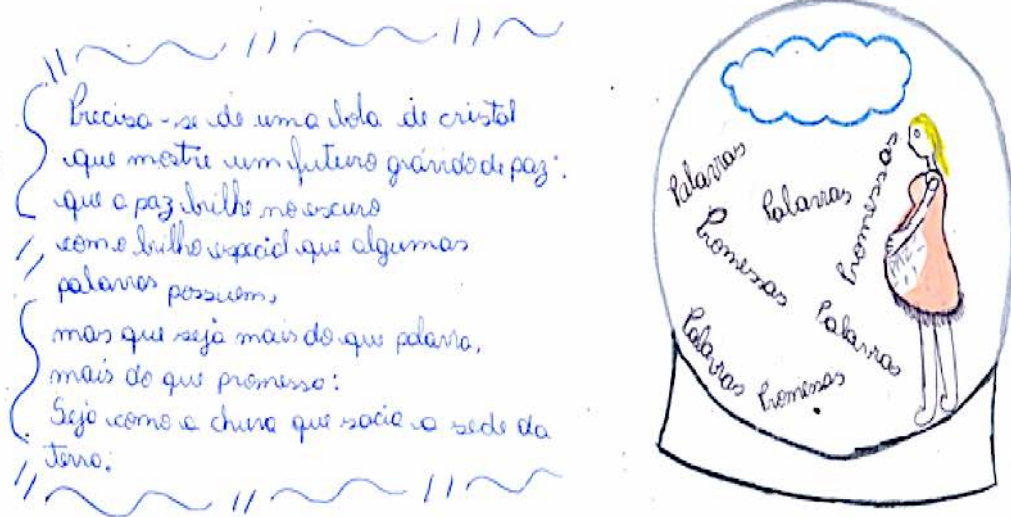 Precisa-se de uma bola de cristal
que mostre um futuro grávido de paz:
que a paz brilhe no escuro
com o brilho especial que algumas
palavras possuem,
mas que seja mais do que palavra,
mais do que promessa:
Seja como a chuva que sacia a sede da
terra.
Palavras
Palavras
Promessas
Promessas
Palavras
Palavras
Promessas